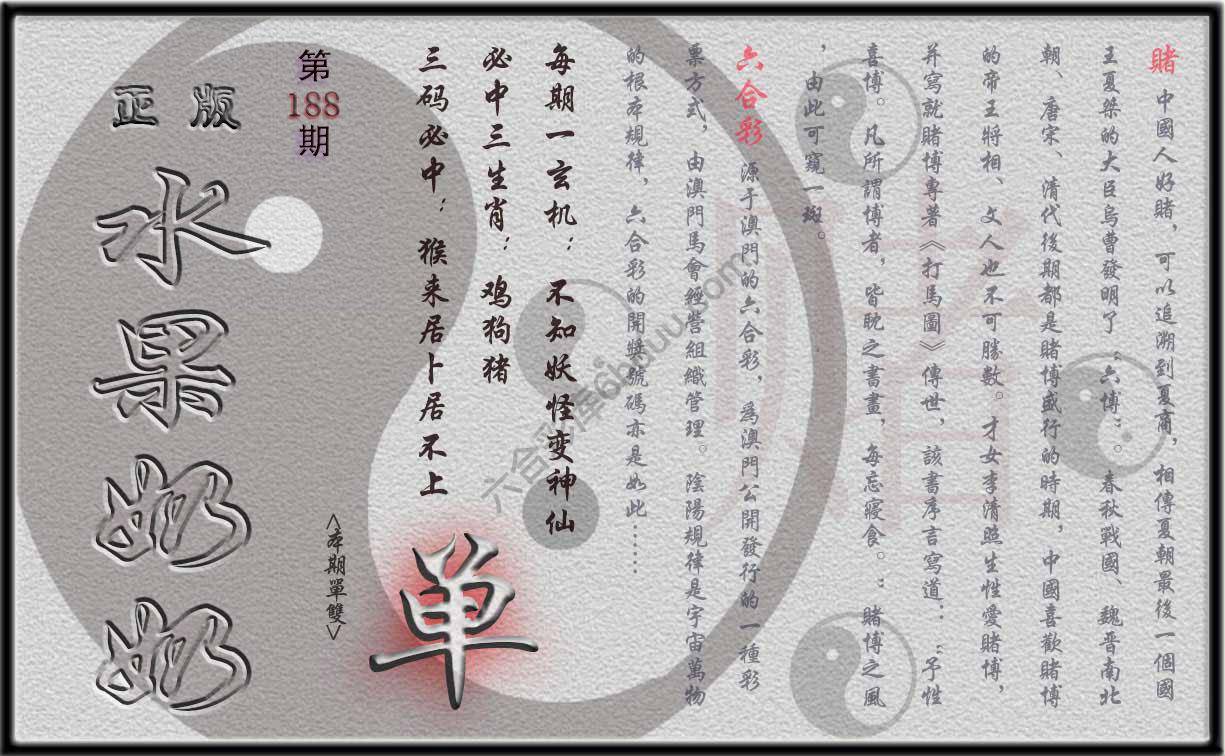 賭 中國人好賭，可以追溯到夏商，相傳夏朝最後一個國
王夏桀的大臣烏曹發明了“六博”。春秋戰國、魏晋南北
朝、唐宋、清代後期都是賭博盛行的時期，中國喜歡賭博
的帝王將相、文人也不可勝數。才女李清照生性愛賭博，
并寫就賭博專著《打馬圖》傳世，該書序言寫道：“予性
喜博。凡所謂博者，皆眈之書畫，每忘寢食。：賭博之風
，由此可窺一斑。
六合彩 源于澳門的六合彩，爲澳門公開發行的一種彩
票方式，由澳門馬會經營組織管理。陰陽規律是宇宙萬物
的根本規律，六合彩的開獎號碼亦是如此……
每期一玄机：不知妖怪变神仙
必中三生肖：鸡狗猪
三码必中：猴来居卜居不上
单
<本期單雙>
第
188
期
正版
水果奶奶
賭
六合彩库6huuu.com